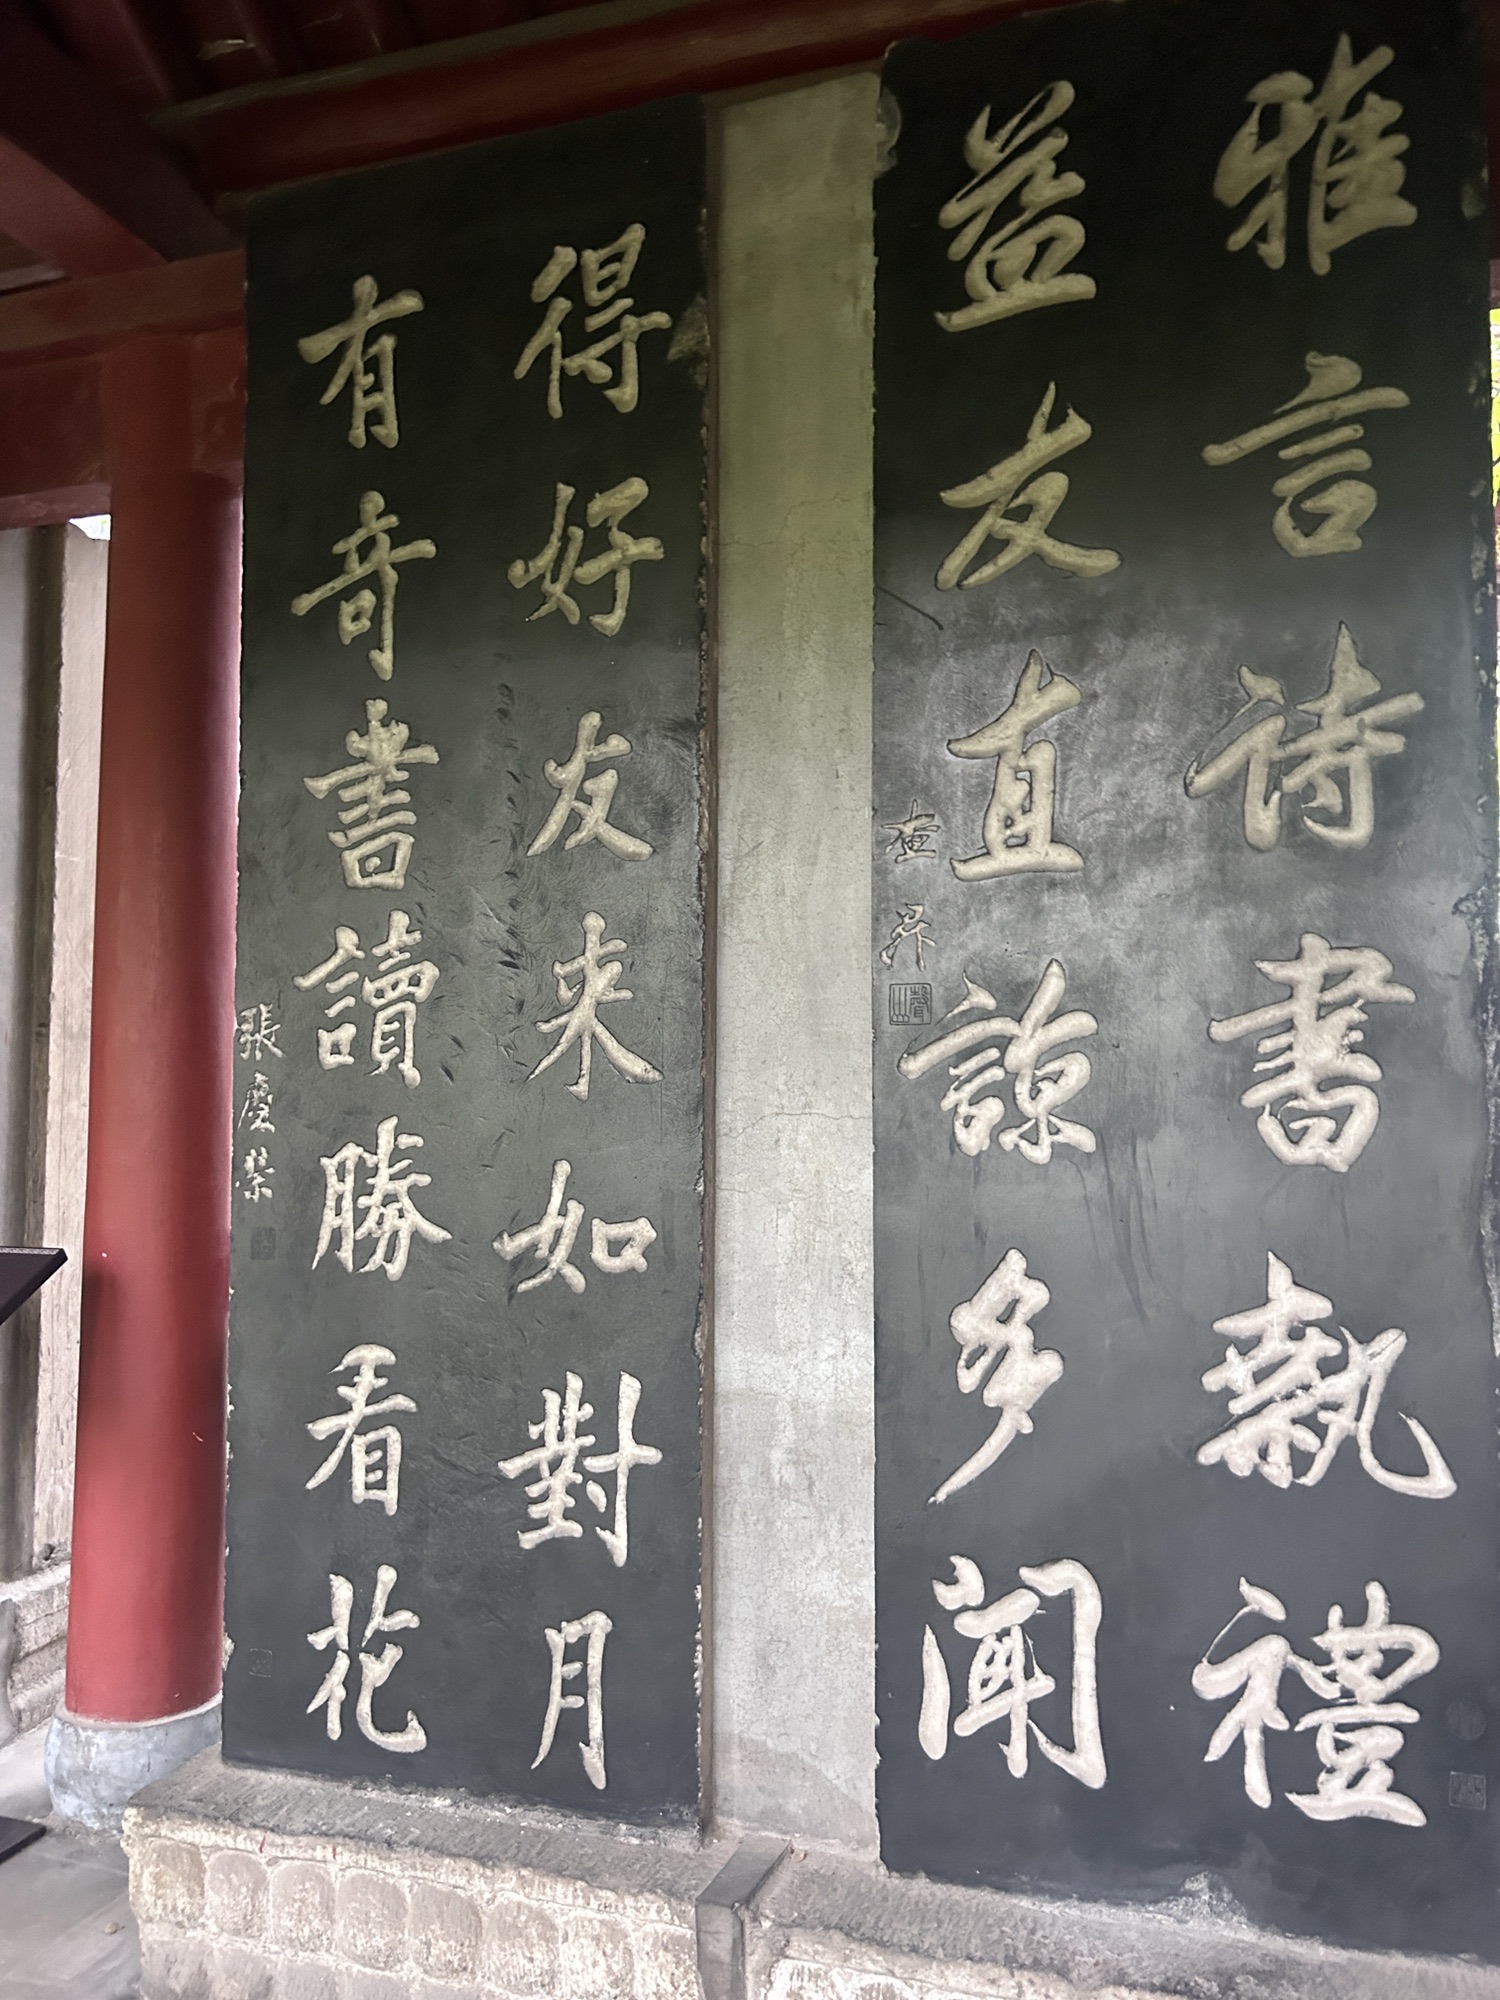 雅言诗書執禮
益友直諒多聞
查昇
得好友来如對月
有奇書讀勝看花
張慶榮